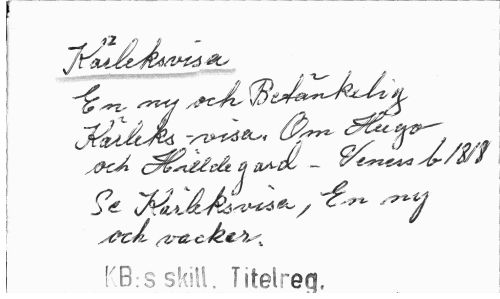 Kärleksvisa
En ny och Betänkelig
Kärleks-visa. Om Hugo
och Hilldegard - Veners b 1818
Se Kärleksvisa, En ny
och vacker.
KB:s skill. Titelreg.